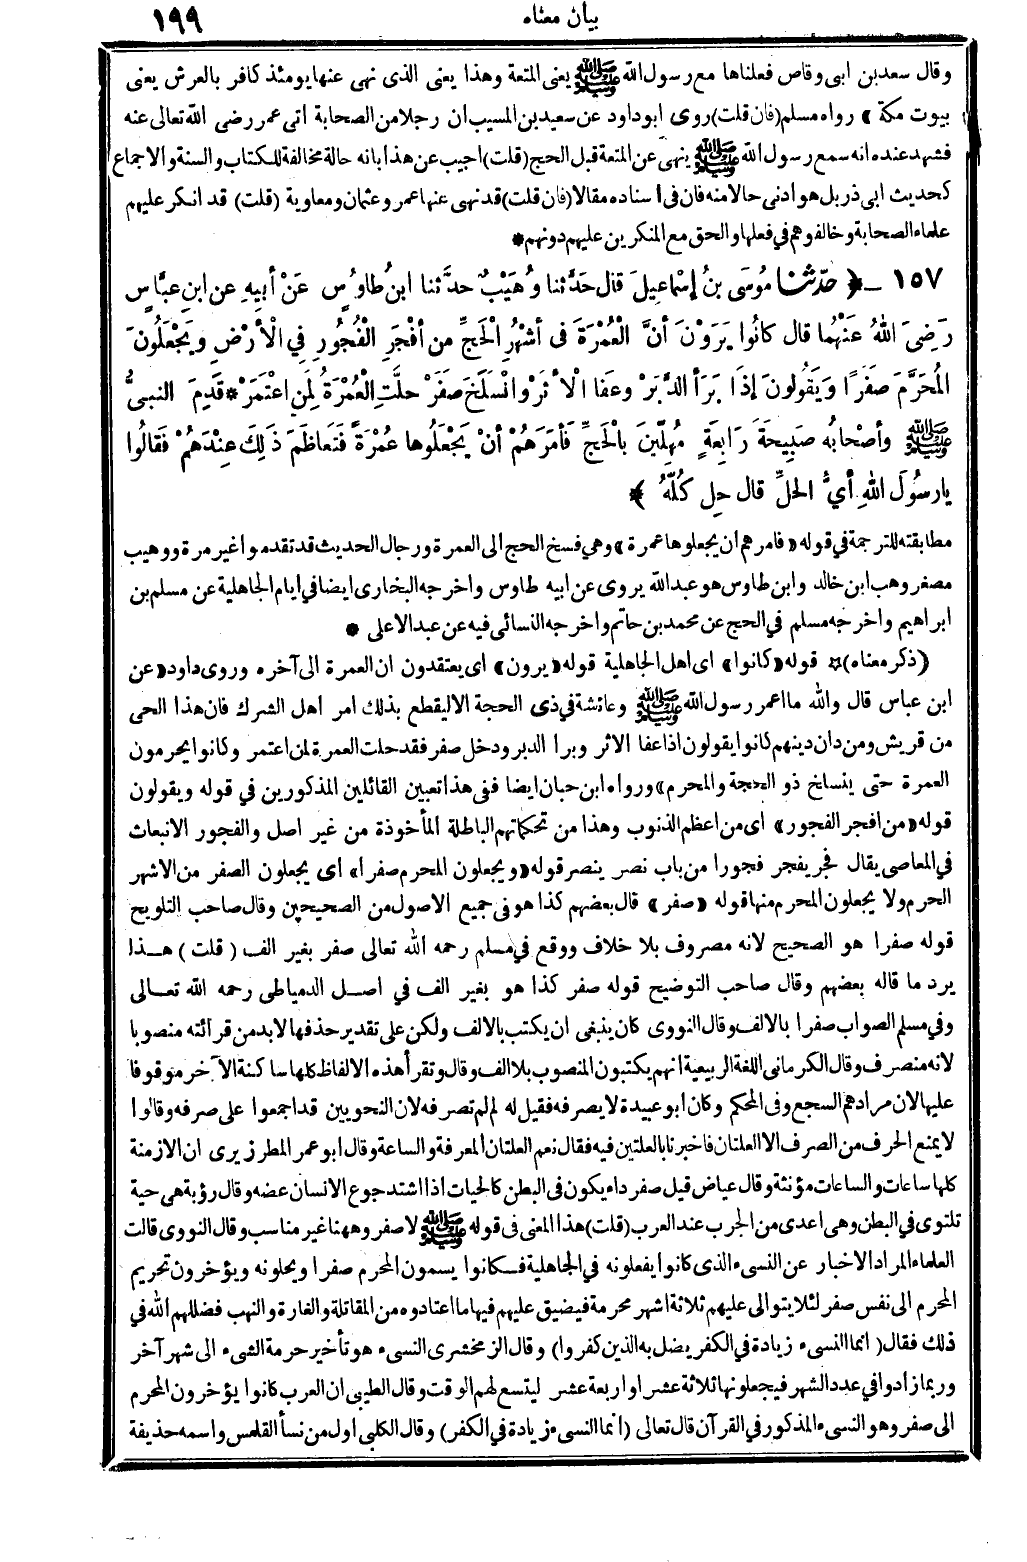 بيان معناه ١٩٩
وقال سعد بن ابى وقاص فعلناها مع رسول الله ﷺ يعنى المتعة وهذا يعنى الذى نهى عنها يومئذ كافر بالعرش يعنى
بيوت مكة » رواه مسلم (فان قلت) روى ابو داود عن سعيد بن المسيب ان رجلا من الصحابة اتى عمر رضى الله تعالى عنه
فشهد عنده انه سمع رسول الله ﷺ ينهى عن المتعة قبل الحج (قلت) اجيب عن هذا بانه حالة مخالفة للكتاب والسنة والاجماع
كحديث ابى ذر بل هو أدنى حالا منه فان فى أسناده مقالا (فان قلت) قد نهى عنها عمر وعثمان ومعاوية (قلت) قد انكر عليهم
علماء الصحابة وخالفوهم في فعلها والحق مع المنكرين عليهم دونهم *
١٥٧ ـ ﴿ حدّثنا مُوسَى بنُ إسْماعِيلَ قال حَدَّثنا وُهَيْبٌ حدَّثنا ابنُ طاوُسٍ عَنْ أبِيهِ عنِ ابنِ عبَّاسٍ
رَضِىَ اللهُ عَنْهُما قال كانُوا يَرَوْنَ أنَّ الْعُمْرَةَ فى أشْهُرِ الْحَجِّ مِن أفْجَرِ الْفُجُورِ فِي الْأَرْضِ ويَجْعَلُونَ
الْمُحَرَّمَ صَفَرًا ويَقُولونَ إذَا بَرَأ الدَّبَرْ وعَفا الْأَثَرْ وانْسَلَخَ صَفَرْ حلَّتِ الْعُمْرَةُ لِمَنِ اعْتَمَرْ * قَدِمَ النبىُّ
ﷺ وأصْحابُه صَبِيحَةَ رَابِعَةٍ مُهِلِّينَ بالْحَجِّ فَأمَرَهُمْ أنْ يَجْعَلُوها عُمْرَةً فَتَعاظَمَ ذَلِكَ عِنْدَهُمْ فَقالُوا
يارسُولَ اللهِ أىُّ الحِلِّ قال حِل كُلُّهُ ﴾
مطابقته للترجمة في قوله «فامرهم ان يجعلوها عمرة» وهي فسخ الحج الى العمرة ورجال الحديث قد تقدموا غير مرة ووهيب
مصغر وهب ابن خالد وابن طاوس هو عبد الله يروى عن ابيه طاوس واخرجه البخارى ايضا في ايام الجاهلية عن مسلم بن
ابراهيم واخرجه مسلم في الحج عن محمد بن حاتم واخرجه النسائى فيه عن عبد الاعلى *
(ذكر معناه) * قوله «كانوا» اى اهل الجاهلية قوله «يرون» اى يعتقدون ان العمرة الى آخره وروى داود «عن
ابن عباس قال والله ما اعمر رسول الله ﷺ وعائشة في ذى الحجة الا ليقطع بذلك امر اهل الشرك فان هذا الحى
من قريش ومن دان دينهم كانوا يقولون اذا عفا الاثر وبرا الدبر ودخل صفر فقد حلت العمرة لمن اعتمر وكانوا يحرمون
العمرة حتى ينسلخ ذو الحجة والمحرم» ورواه ابن حبان ايضا ففى هذا تعيين القائلين المذكورين في قوله ويقولون
قوله «من افجر الفجور» اى من اعظم الذنوب وهذا من تحكماتهم الباطلة المأخوذة من غير اصل والفجور الانبعاث
في المعاصى يقال فجر يفجر فجورا من باب نصر ينصر قوله «ويجعلون المحرم صفرا» اى يجعلون الصفر من الاشهر
الحرم ولا يجعلون المحرم منها قوله «صفر» قال بعضهم كذا هو فى جميع الاصول من الصحيحين وقال صاحب التلويح
قوله صفرا هو الصحيح لانه مصروف بلا خلاف ووقع في مسلم رحمه الله تعالى صفر بغير الف (قلت) هذا
يرد ما قاله بعضهم وقال صاحب التوضيح قوله صفر كذا هو بغير الف في اصل الدمياطى رحمه الله تعالى
وفي مسلم الصواب صفرا بالالف وقال النووى كان ينبغى ان يكتب بالالف ولكن على تقدير حذفها لابد من قرائته منصوبا
لانه منصرف وقال الكرمانى اللغة الربيعية انهم يكتبون المنصوب بلا الف وقال وتقرأ هذه الالفاظ كلها ساكنة الآخر موقوفا
عليها لان مرادهم السجع وفى المحكم وكان ابو عبيدة لا يصرفه فقيل له لم لم تصرفه لان النحويين قد اجمعوا على صرفه وقالوا
لا يمنع الحرف من الصرف الا العلتان فاخبرنا بالعلتين فيه فقال نعم العلتان المعرفة والساعة وقال ابو عمر المطرزى يرى ان الازمنة
كلها ساعات والساعات مؤنثة وقال عياض قيل صفر داء يكون فى البطن كالحيات اذا اشتد جوع الانسان عضه وقال رؤبة هى حية
تلتوى في البطن وهى اعدى من الجرب عند العرب (قلت) هذا المعنى فى قوله ﷺ لا صفر وههنا غير مناسب وقال النووى قالت
العلماء المراد الاخبار عن النسىء الذى كانوا يفعلونه في الجاهلية فكانوا يسمون المحرم صفرا ويحلونه ويؤخرون تحريم
المحرم الى نفس صفر لئلا يتوالى عليهم ثلاثة اشهر محرمة فيضيق عليهم فيها ما اعتادوه من المقاتلة والغارة والنهب فضللهم الله في
ذلك فقال (انما النسىء زيادة في الكفر يضل به الذين كفروا) وقال الزمخشرى النسىء هو تأخير حرمة الشىء الى شهر آخر
وربما زادوا في عدد الشهر فيجعلونها ثلاثة عشر او اربعة عشر ليتسع لهم الوقت وقال الطيبى ان العرب كانوا يؤخرون المحرم
الى صفر وهو النسىء المذكور في القرآن قال تعالى (انما النسىء زيادة في الكفر) وقال الكلبى اول من نسأ القلمس واسمه حذيفة